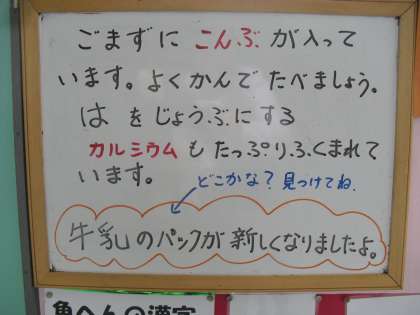 ごまずに こんぶ が入って
います。よくかんで たべましょう。
は を じょうぶにする
カルシウム も たっぷりふくまれて
います。
どこかな？見つけてね.
牛乳のパックが新しくなりましたよ。
魚へんの漢字